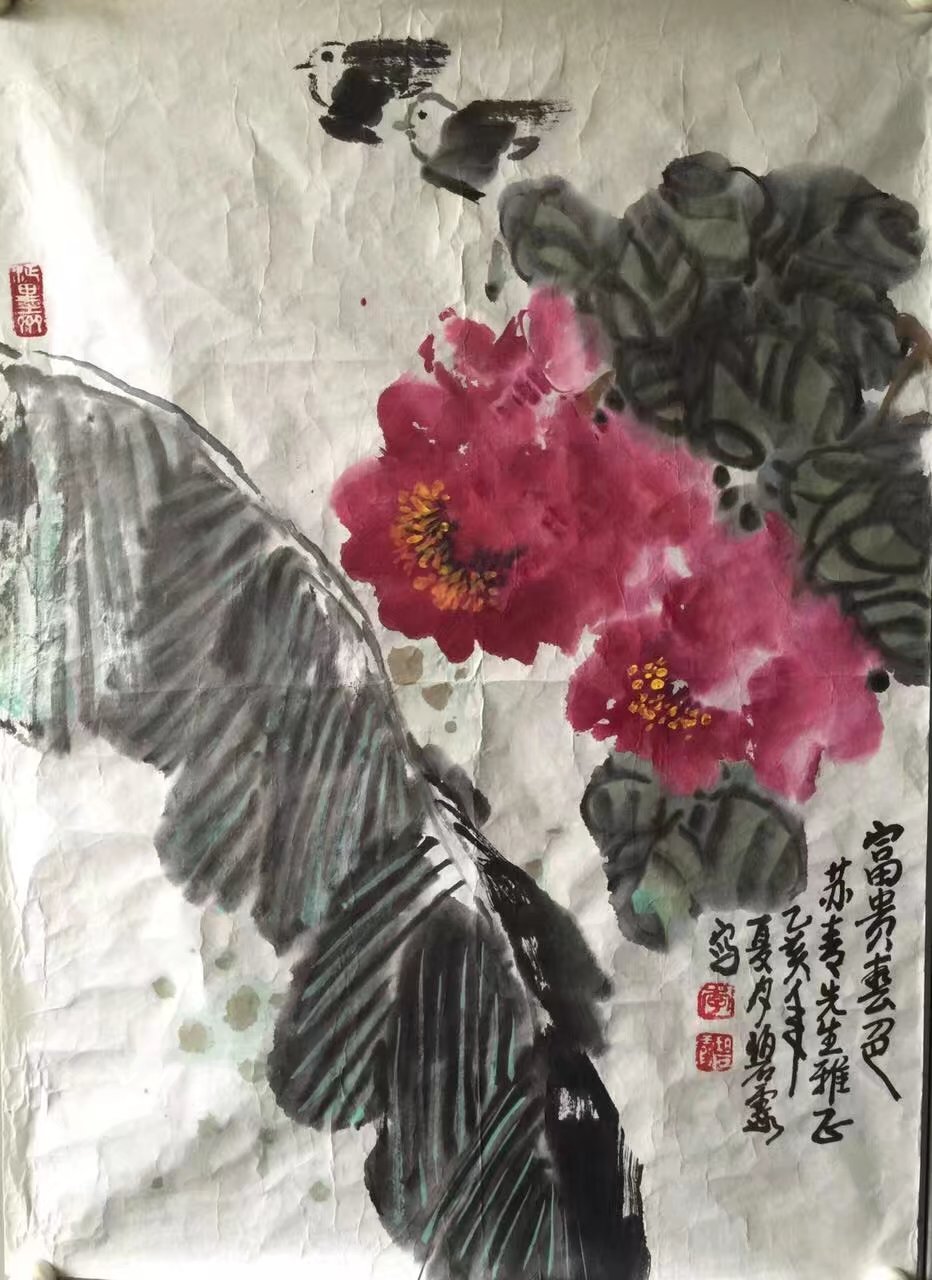 富贵春色
苏青先生雅正
乙亥年
夏月碧霞
写